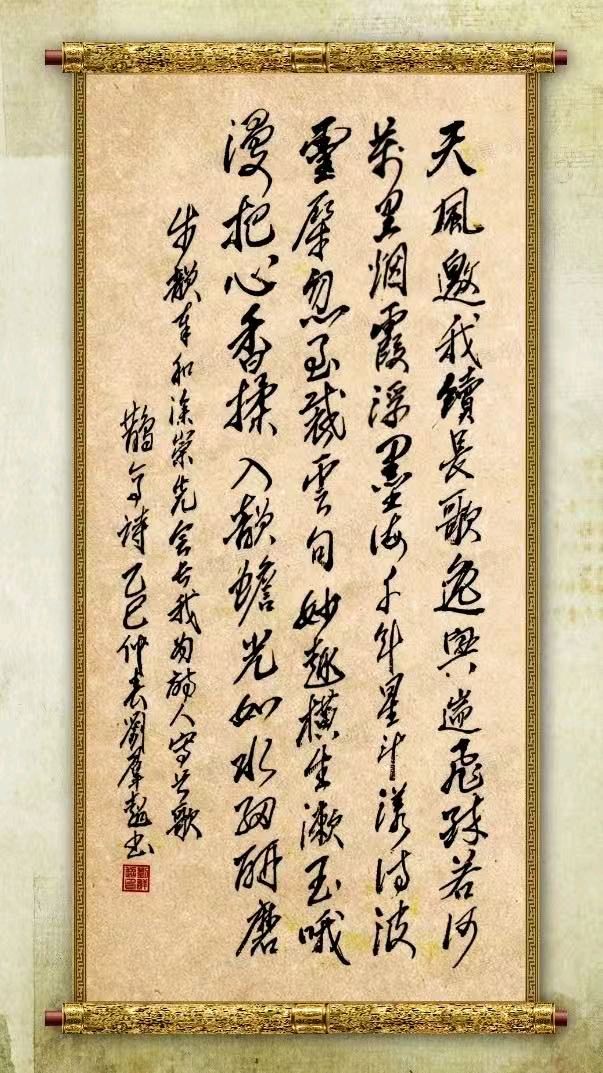 天風邀我續長歌逸興遄飛若河
萬里烟霞浮墨海千年星斗漾詩波
靈犀忽至裁雲句妙趣橫生漱玉哦
漫把心香揉入韻蟾光如水細研磨
步韻奉和涂崇先會長我為詩人寫長歌
詩乙巳仲春劉羣書